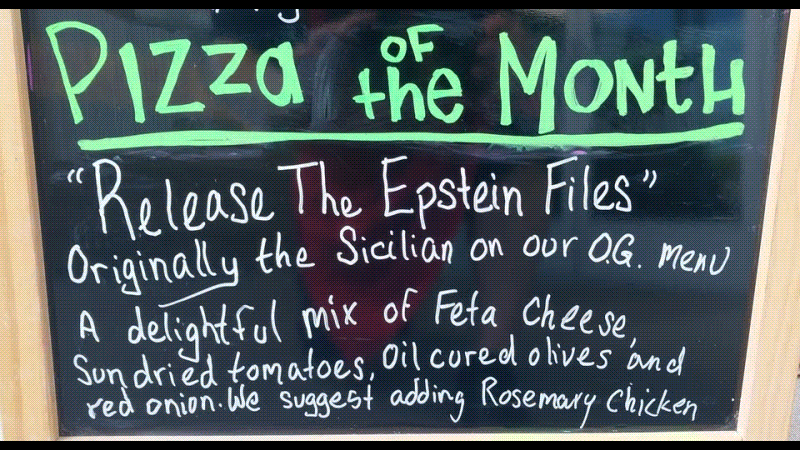 Pizza of the Month
"Release The Epstein Files"
Originally the Sicilian on our O.G. menu
A delightful mix of Feta Cheese,
Sun dried tomatoes, Oil cured olives and
red onion. We suggest adding Rosemary Chicken